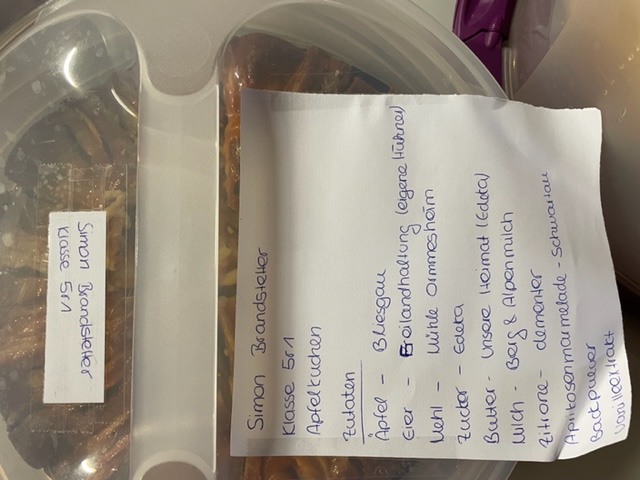 Simon Brandstetter
Klasse 5r1
Simon Brandstetter
Klasse 5r1
Apfelkuchen
Zutaten
Äpfel - Bliesgau
Eier - Freilandhaltung (eigene Hühner)
Mehl - Mühle Ommesheim
Zucker - Edeka
Butter - unsere Heimat (Edeka)
Milch - Berg & Alpenmilch
Zitrone - dementer
Aprikosenmarmelade - Schwartau
Backpulver
Vanilleextrakt